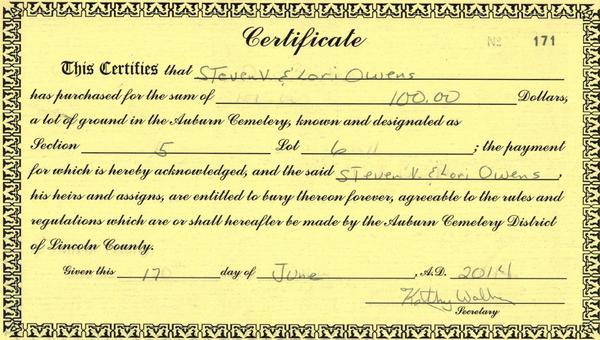 Certificate
No 171
This Certifies that Steven V. & Lori Owens
has purchased for the sum of 100.00 Dollars,
a lot of ground in the Auburn Cemetery, known and designated as
Section 5 Lot 6 ; the payment
for which is hereby acknowledged, and the said Steven V. & Lori Owens ,
his heirs and assigns, are entitled to bury thereon forever, agreeable to the rules and
regulations which are or shall hereafter be made by the Auburn Cemetery District
of Lincoln County.
Given this 17 day of June , A.D. 2014
Kathy
Secretary